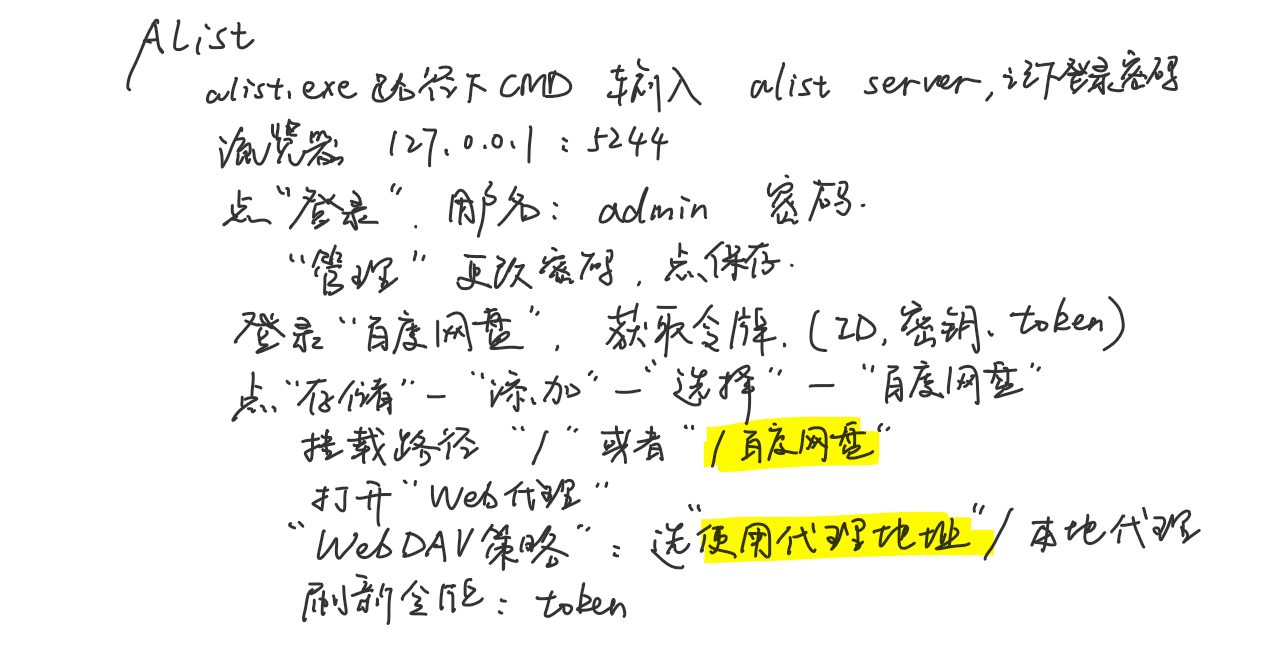 AList
alist.exe 路径下 CMD 输入 alist server, 记下登录密码
浏览器 127.0.0.1:5244
点"登录". 用户名: admin 密码.
"管理" 更改密码, 点保存.
登录"百度网盘", 获取令牌. (ID, 密钥、token)
点"存储" — "添加" — "选择" — "百度网盘"
挂载路径 "/" 或者 "/百度网盘"
打开"Web代理"
"WebDAV策略": 选"使用代理地址"/本地代理
刷新令牌: token